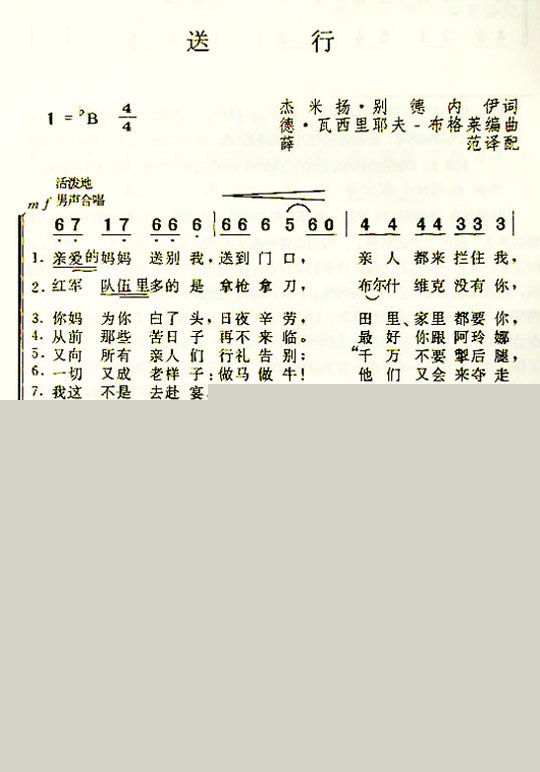 送 行
1 = ♭B 4/4
杰米扬·别德内伊词
德·瓦西里耶夫-布格莱编曲
薛 范译配
活泼地
mf 男声合唱
6 7 1 7 6 6 6 | 6 6 6 5 6 0 | 4 4 4 4 3 3 3 |
1. 亲爱的妈妈 送别我,送到门口, 亲人都来拦住我,
2. 红军 队伍里多的是 拿枪拿刀, 布尔什维克没有你,
3. 你妈 为你 白了头,日夜辛劳, 田里、家里都要你,
4. 从前 那些 苦日子 再不来临。 最好你跟阿玲娜
5. 又向 所有 亲人们 行礼告别: “千万不要掣后腿,
6. 一切 又成 老样子:做马做牛! 他们又会来夺走
7. 我这 不是 去赴宴